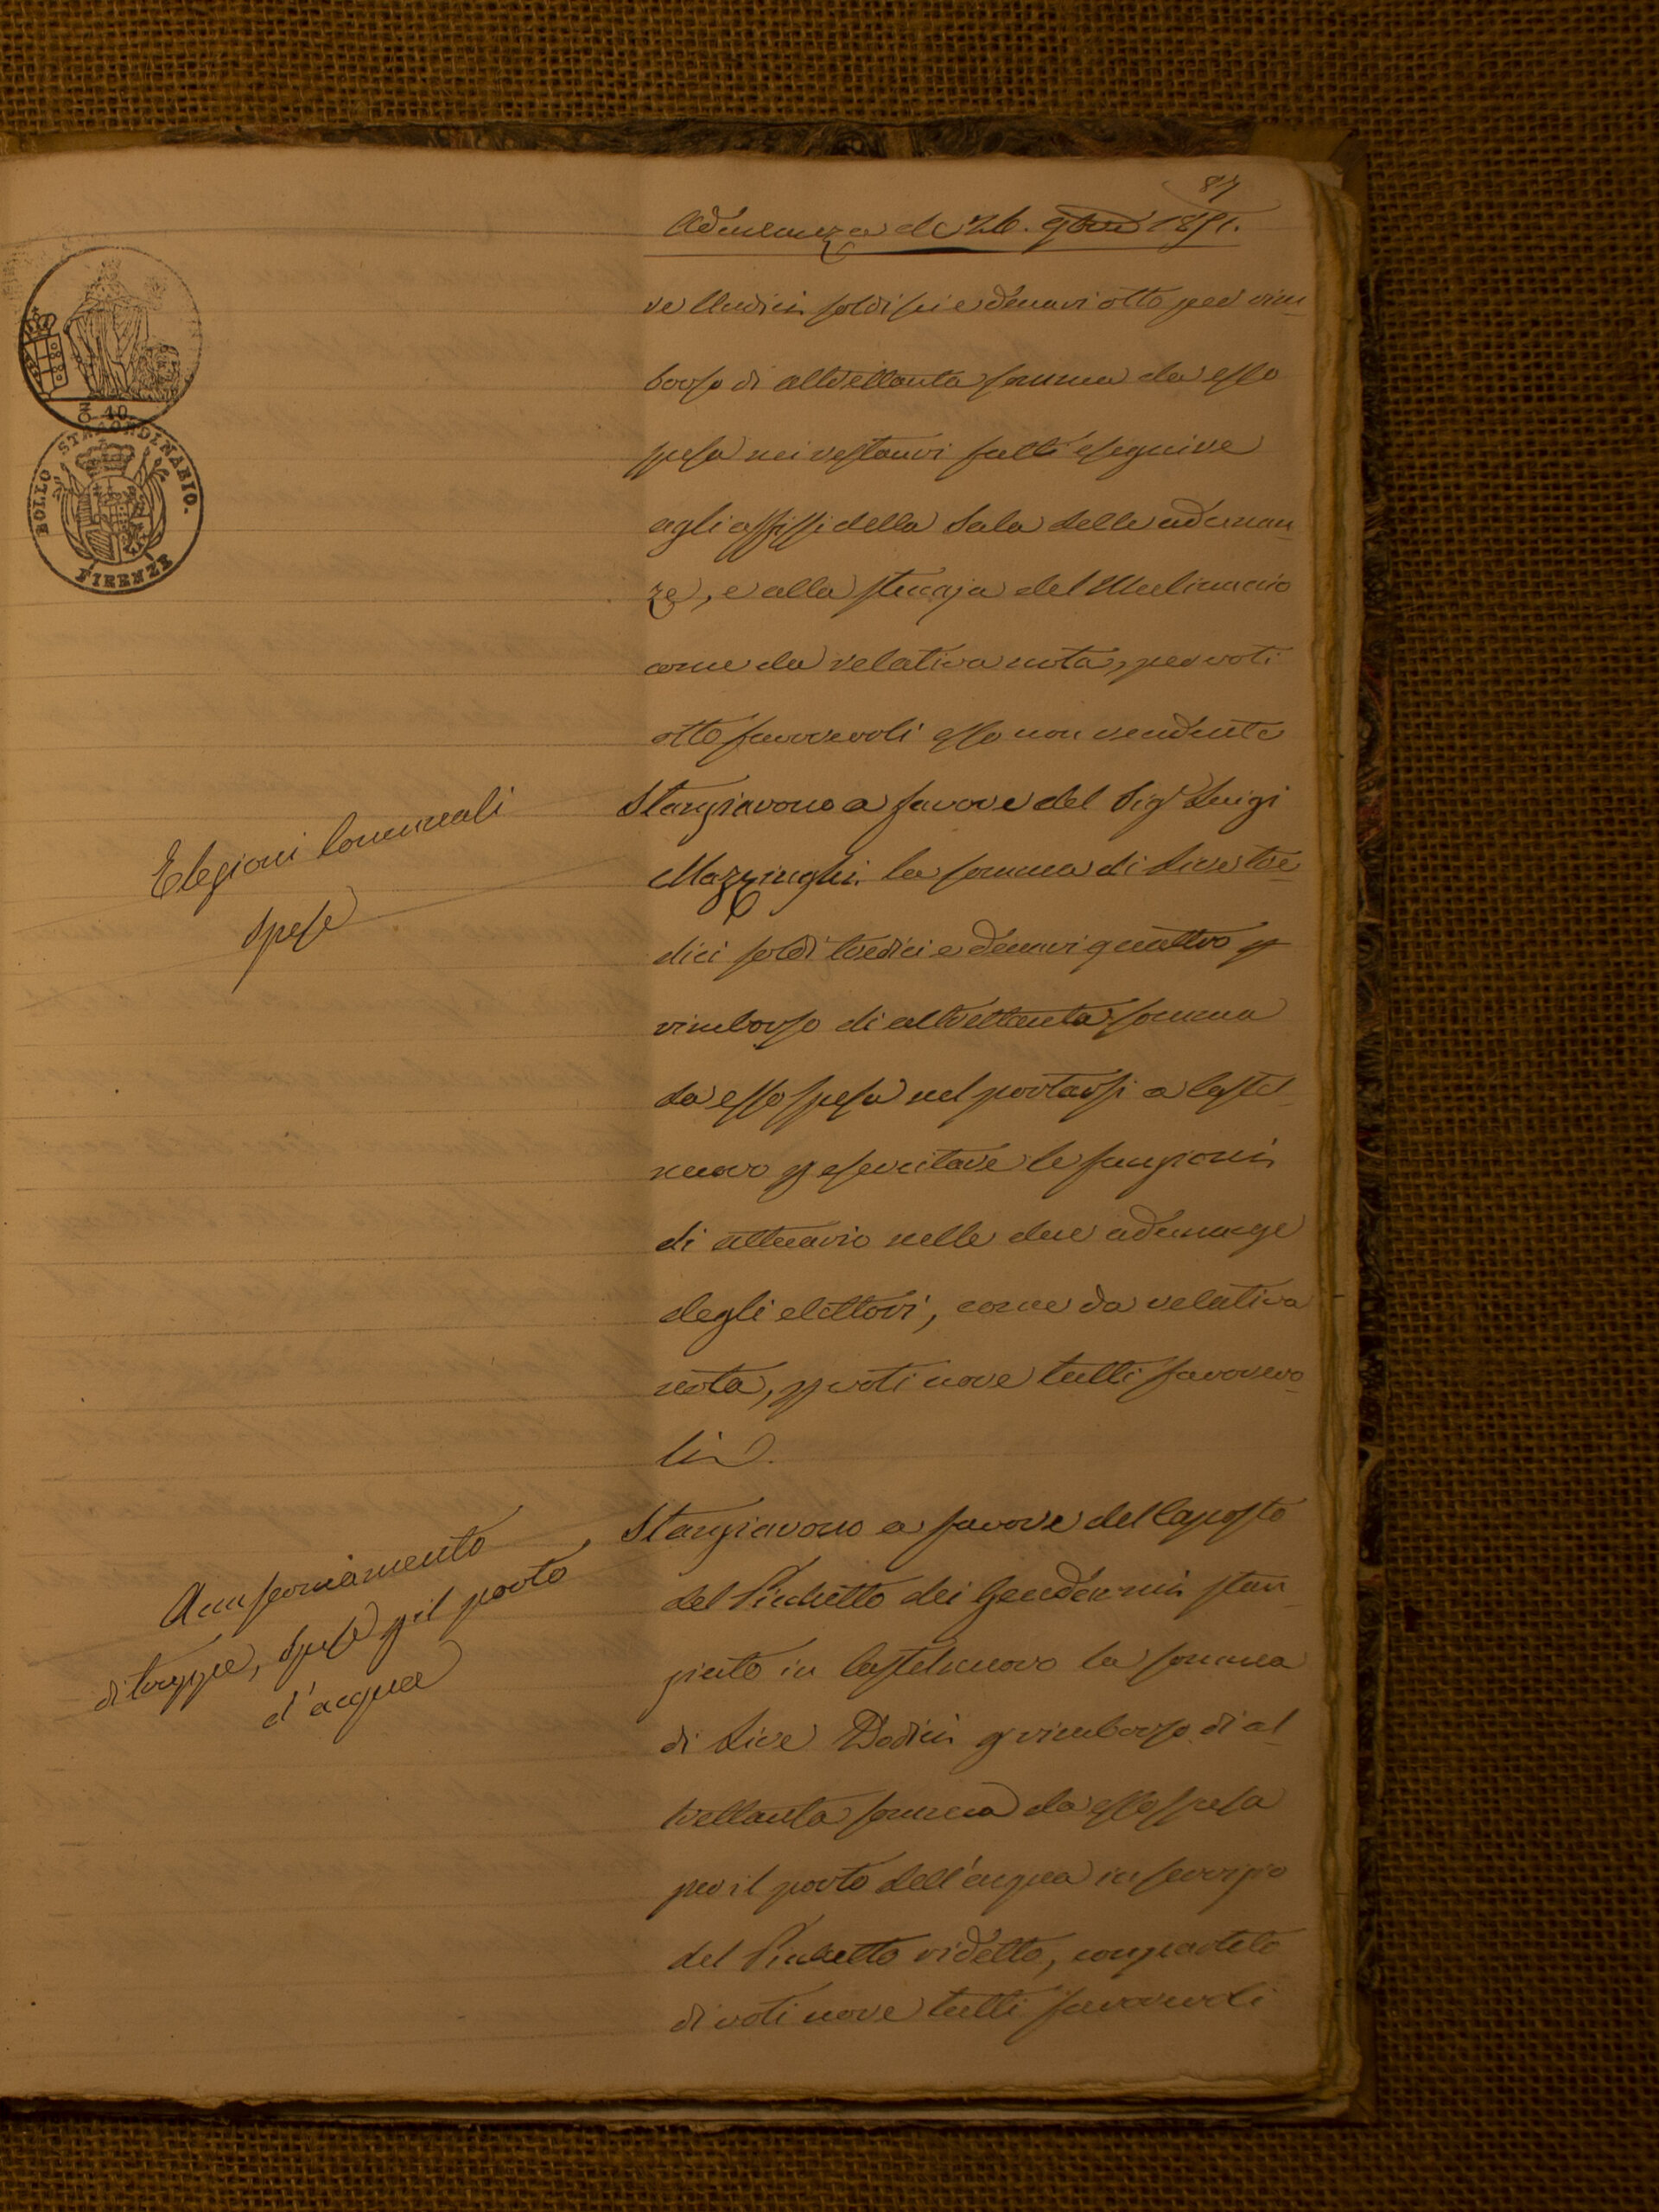 87
Adunanza de 26. 9bre 1851.
re Undici soldi sei e denari otto per rim-
borso di altrettanta somma da esso
spesa nei restauri fatti eseguire
agli affissi della Sala delle adunan-
ze, e alla stuoja del Mulinaccio
come da relativa nota, per voti
otto favorevoli esso non rendente
Elezioni Comunali
spese
Stanziarono a favore del Sig.r Luigi
Mazzinghi la somma di Lire tre-
dici soldi tredici e denari quattro p
rimborso di altrettanta somma
da esso spesa nel portarsi a Castel-
nuovo p esercitare le funzioni
di attuario nelle due adunanze
degli elettori, come da relativa
nota, p voti nove tutti favorevo-
li.
Acasermamento
di truppe, spese p il porto
d'acqua
Stanziarono a favore del Caposto
del Picchetto dei Gendarmi stan-
ziato in Castelnuovo la somma
di Lire Dodici p rimborso di al-
trettanta somma da esso spesa
per il porto dell'acqua in servizio
del Picchetto ridetto, con partito
di voti nove tutti favorevoli
No 10
BOLLO STRAORDINARIO.
FIRENZE